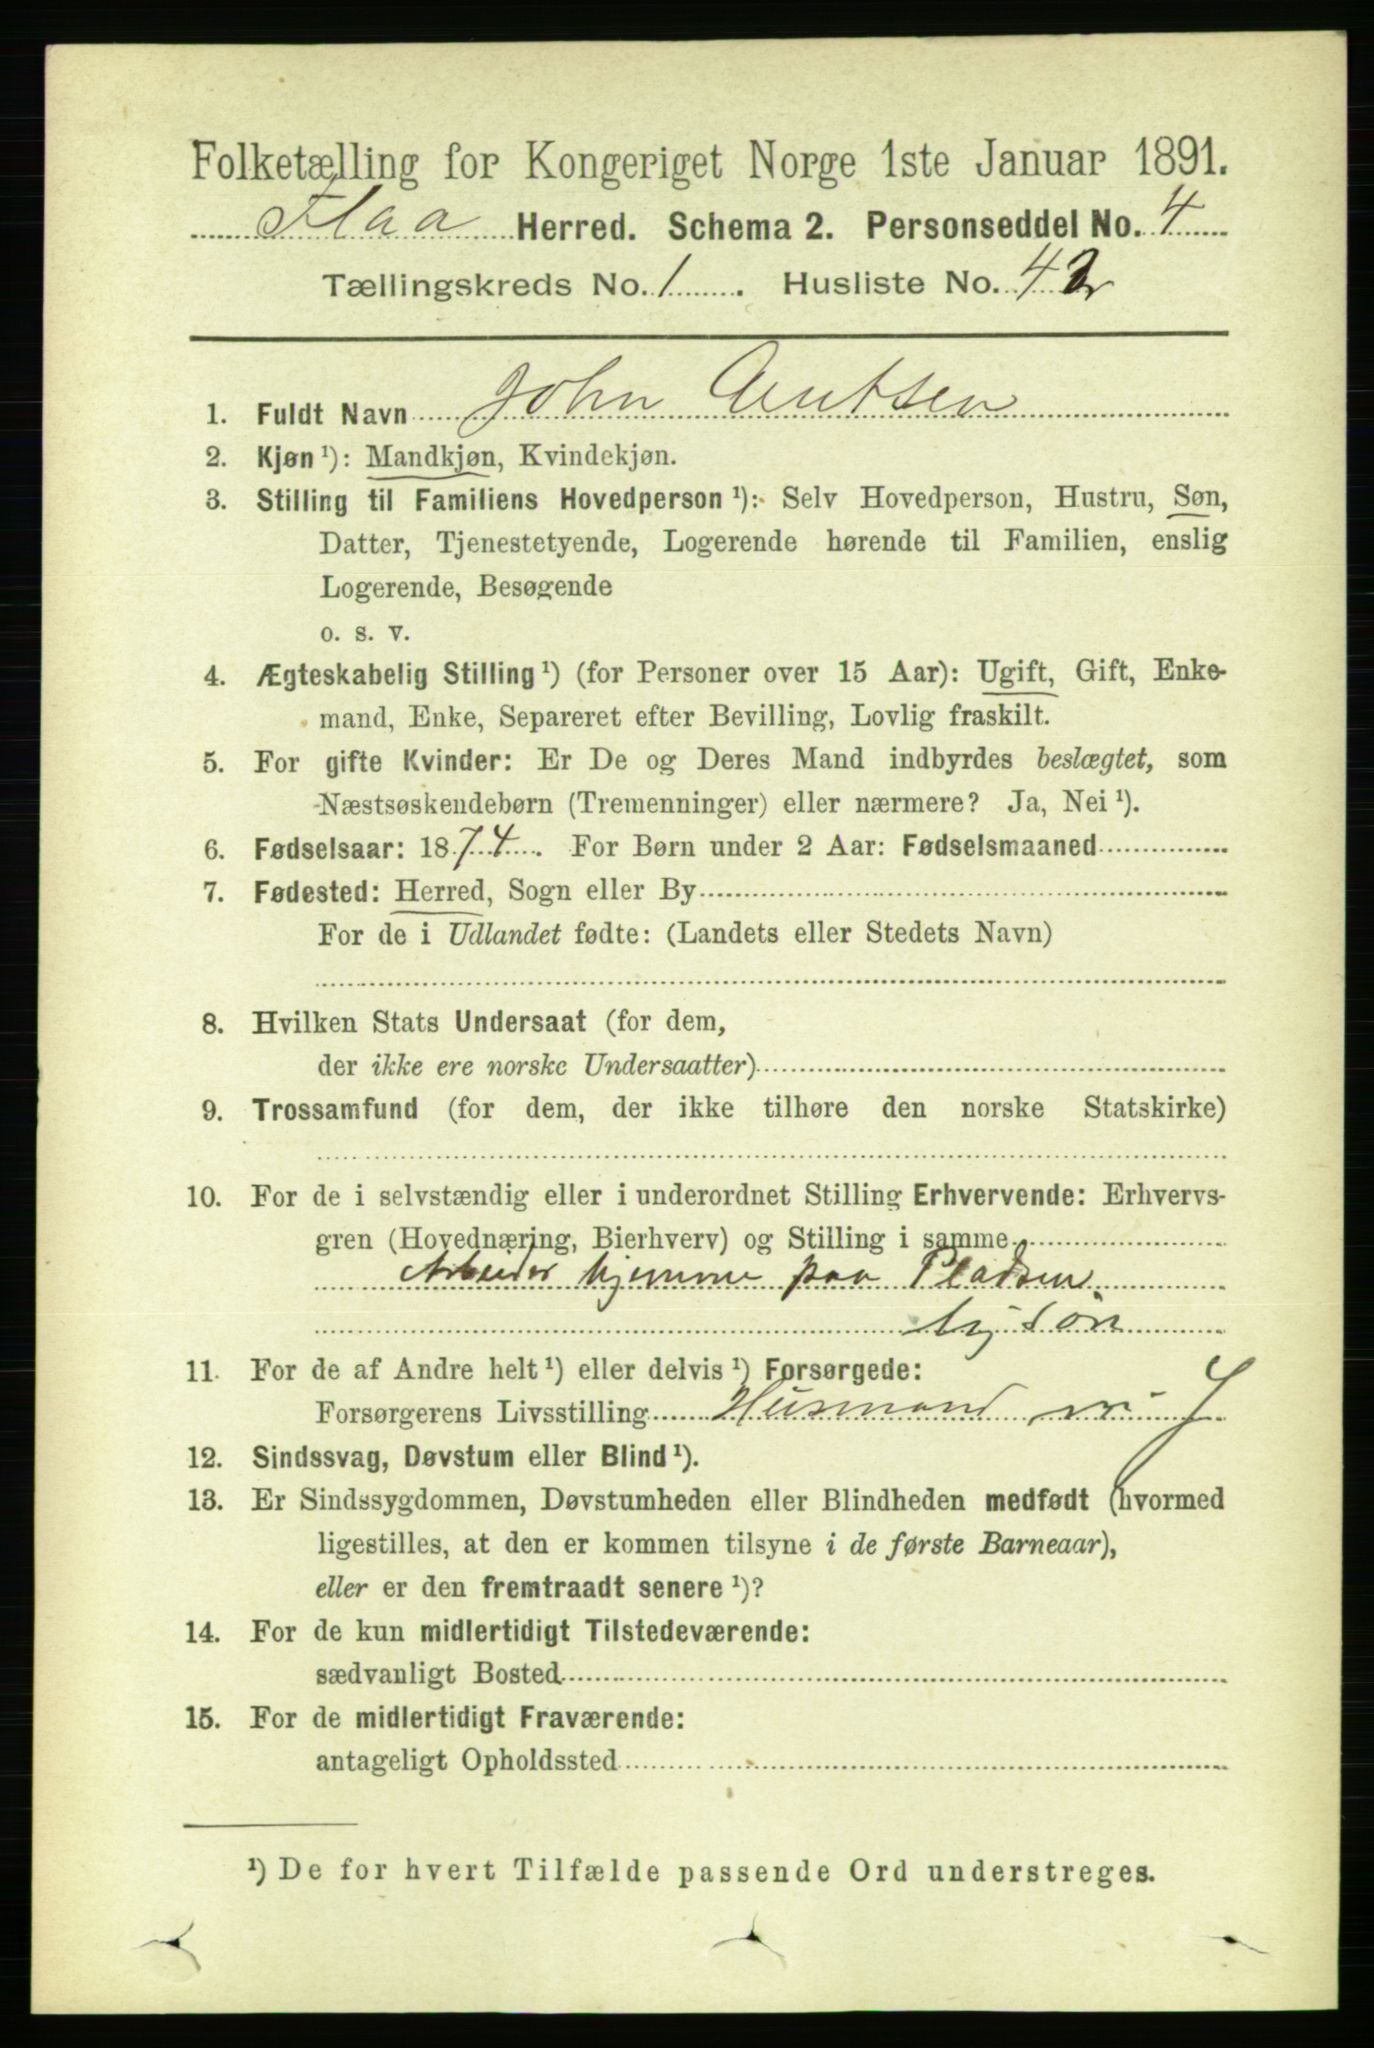 Folketælling for Kongeriget Norge 1ste Januar 1891.
Flaa Herred. Schema 2. Personseddel No. 4
Tællingskreds No. 1. Husliste No. 42
1. Fuldt Navn John Arntsen
2. Kjøn ¹): Mandkjøn, Kvindekjøn.
3. Stilling til Familiens Hovedperson ¹): Selv Hovedperson, Hustru, Søn,
Datter, Tjenestetyende, Logerende hørende til Familien, enslig
Logerende, Besøgende
o. s. v.
4. Ægteskabelig Stilling ¹) (for Personer over 15 Aar): Ugift, Gift, Enke-
mand, Enke, Separeret efter Bevilling, Lovlig fraskilt.
5. For gifte Kvinder: Er De og Deres Mand indbyrdes beslægtet, som
Næstsøskendebørn (Tremenninger) eller nærmere? Ja, Nei ¹).
6. Fødselsaar: 1874. For Børn under 2 Aar: Fødselsmaaned
7. Fødested: Herred, Sogn eller By
For de i Udlandet fødte: (Landets eller Stedets Navn)
8. Hvilken Stats Undersaat (for dem,
der ikke ere norske Undersaatter)
9. Trossamfund (for dem, der ikke tilhøre den norske Statskirke)
10. For de i selvstændig eller i underordnet Stilling Erhvervende: Erhvervs-
gren (Hovednæring, Bierhverv) og Stilling i samme
Arbeider hjemme paa Pladsen
søn
11. For de af Andre helt ¹) eller delvis ¹) Forsørgede:
Forsørgerens Livsstilling Husmand m. J
12. Sindssvag, Døvstum eller Blind ¹).
13. Er Sindssygdommen, Døvstumheden eller Blindheden medfødt (hvormed
ligestilles, at den er kommen tilsyne i de første Barneaar),
eller er den fremtraadt senere ¹)?
14. For de kun midlertidigt Tilstedeværende:
sædvanligt Bosted
15. For de midlertidigt Fraværende:
antageligt Opholdssted
¹) De for hvert Tilfælde passende Ord understreges.